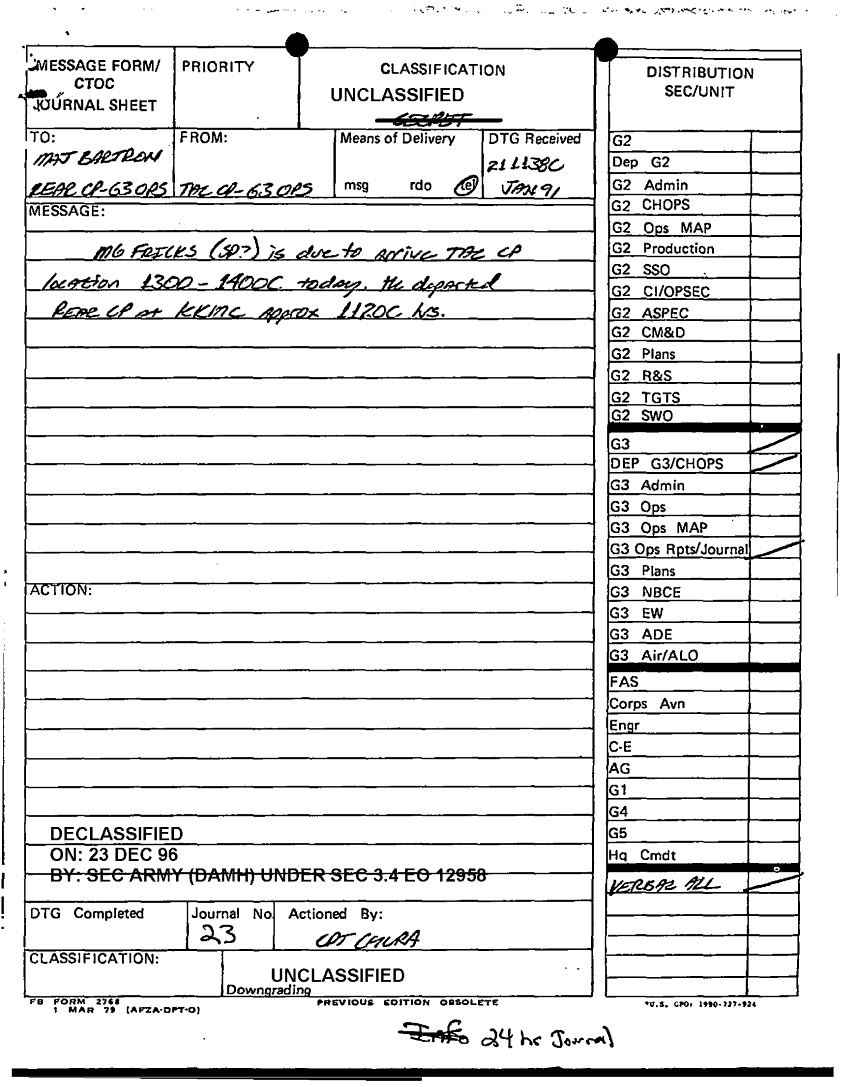 MESSAGE FORM/
CTOC
JOURNAL SHEET
PRIORITY
CLASSIFICATION
UNCLASSIFIED
SECRET
TO:
MAJ BARTRON
REAR CP-G3 OPS
FROM:
TAC CP-G3 OPS
Means of Delivery
msg rdo tel
DTG Received
211138C
JAN 91
MESSAGE:
MG FRICKS (SP?) is due to arrive TAC CP
location 1300-1400C today. He departed
REAR CP at KKMC approx 1120C hrs.
ACTION:
DECLASSIFIED
ON: 23 DEC 96
BY: SEC ARMY (DAMH) UNDER SEC 3.4 EO 12958
DTG Completed
Journal No.
23
Actioned By:
CPT
CLASSIFICATION:
UNCLASSIFIED
Downgrading
FB FORM 2768
1 MAR 79 (AFZA-DPT-O)
PREVIOUS EDITION OBSOLETE
DISTRIBUTION
SEC/UNIT
G2
Dep G2
G2 Admin
G2 CHOPS
G2 Ops MAP
G2 Production
G2 SSO
G2 CI/OPSEC
G2 ASPEC
G2 CM&D
G2 Plans
G2 R&S
G2 TGTS
G2 SWO
G3
DEP G3/CHOPS
G3 Admin
G3 Ops
G3 Ops MAP
G3 Ops Rpts/Journal
G3 Plans
G3 NBCE
G3 EW
G3 ADE
G3 Air/ALO
FAS
Corps Avn
Engr
C-E
AG
G1
G4
G5
Hq Cmdt
VERBAL ALL
*U.S. GPO: 1990-727-924
Info 24 hr Journal